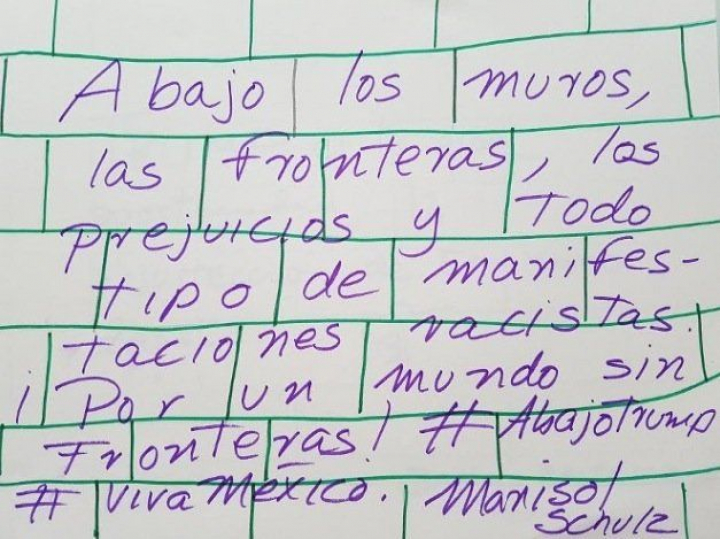 Abajo los muros,
las fronteras, los
prejuicios y Todo
tipo de manifes-
taciones racistas.
¡Por un mundo sin
Fronteras! #AbajoTrump
#VivaMéxico. Marisol
Schulz